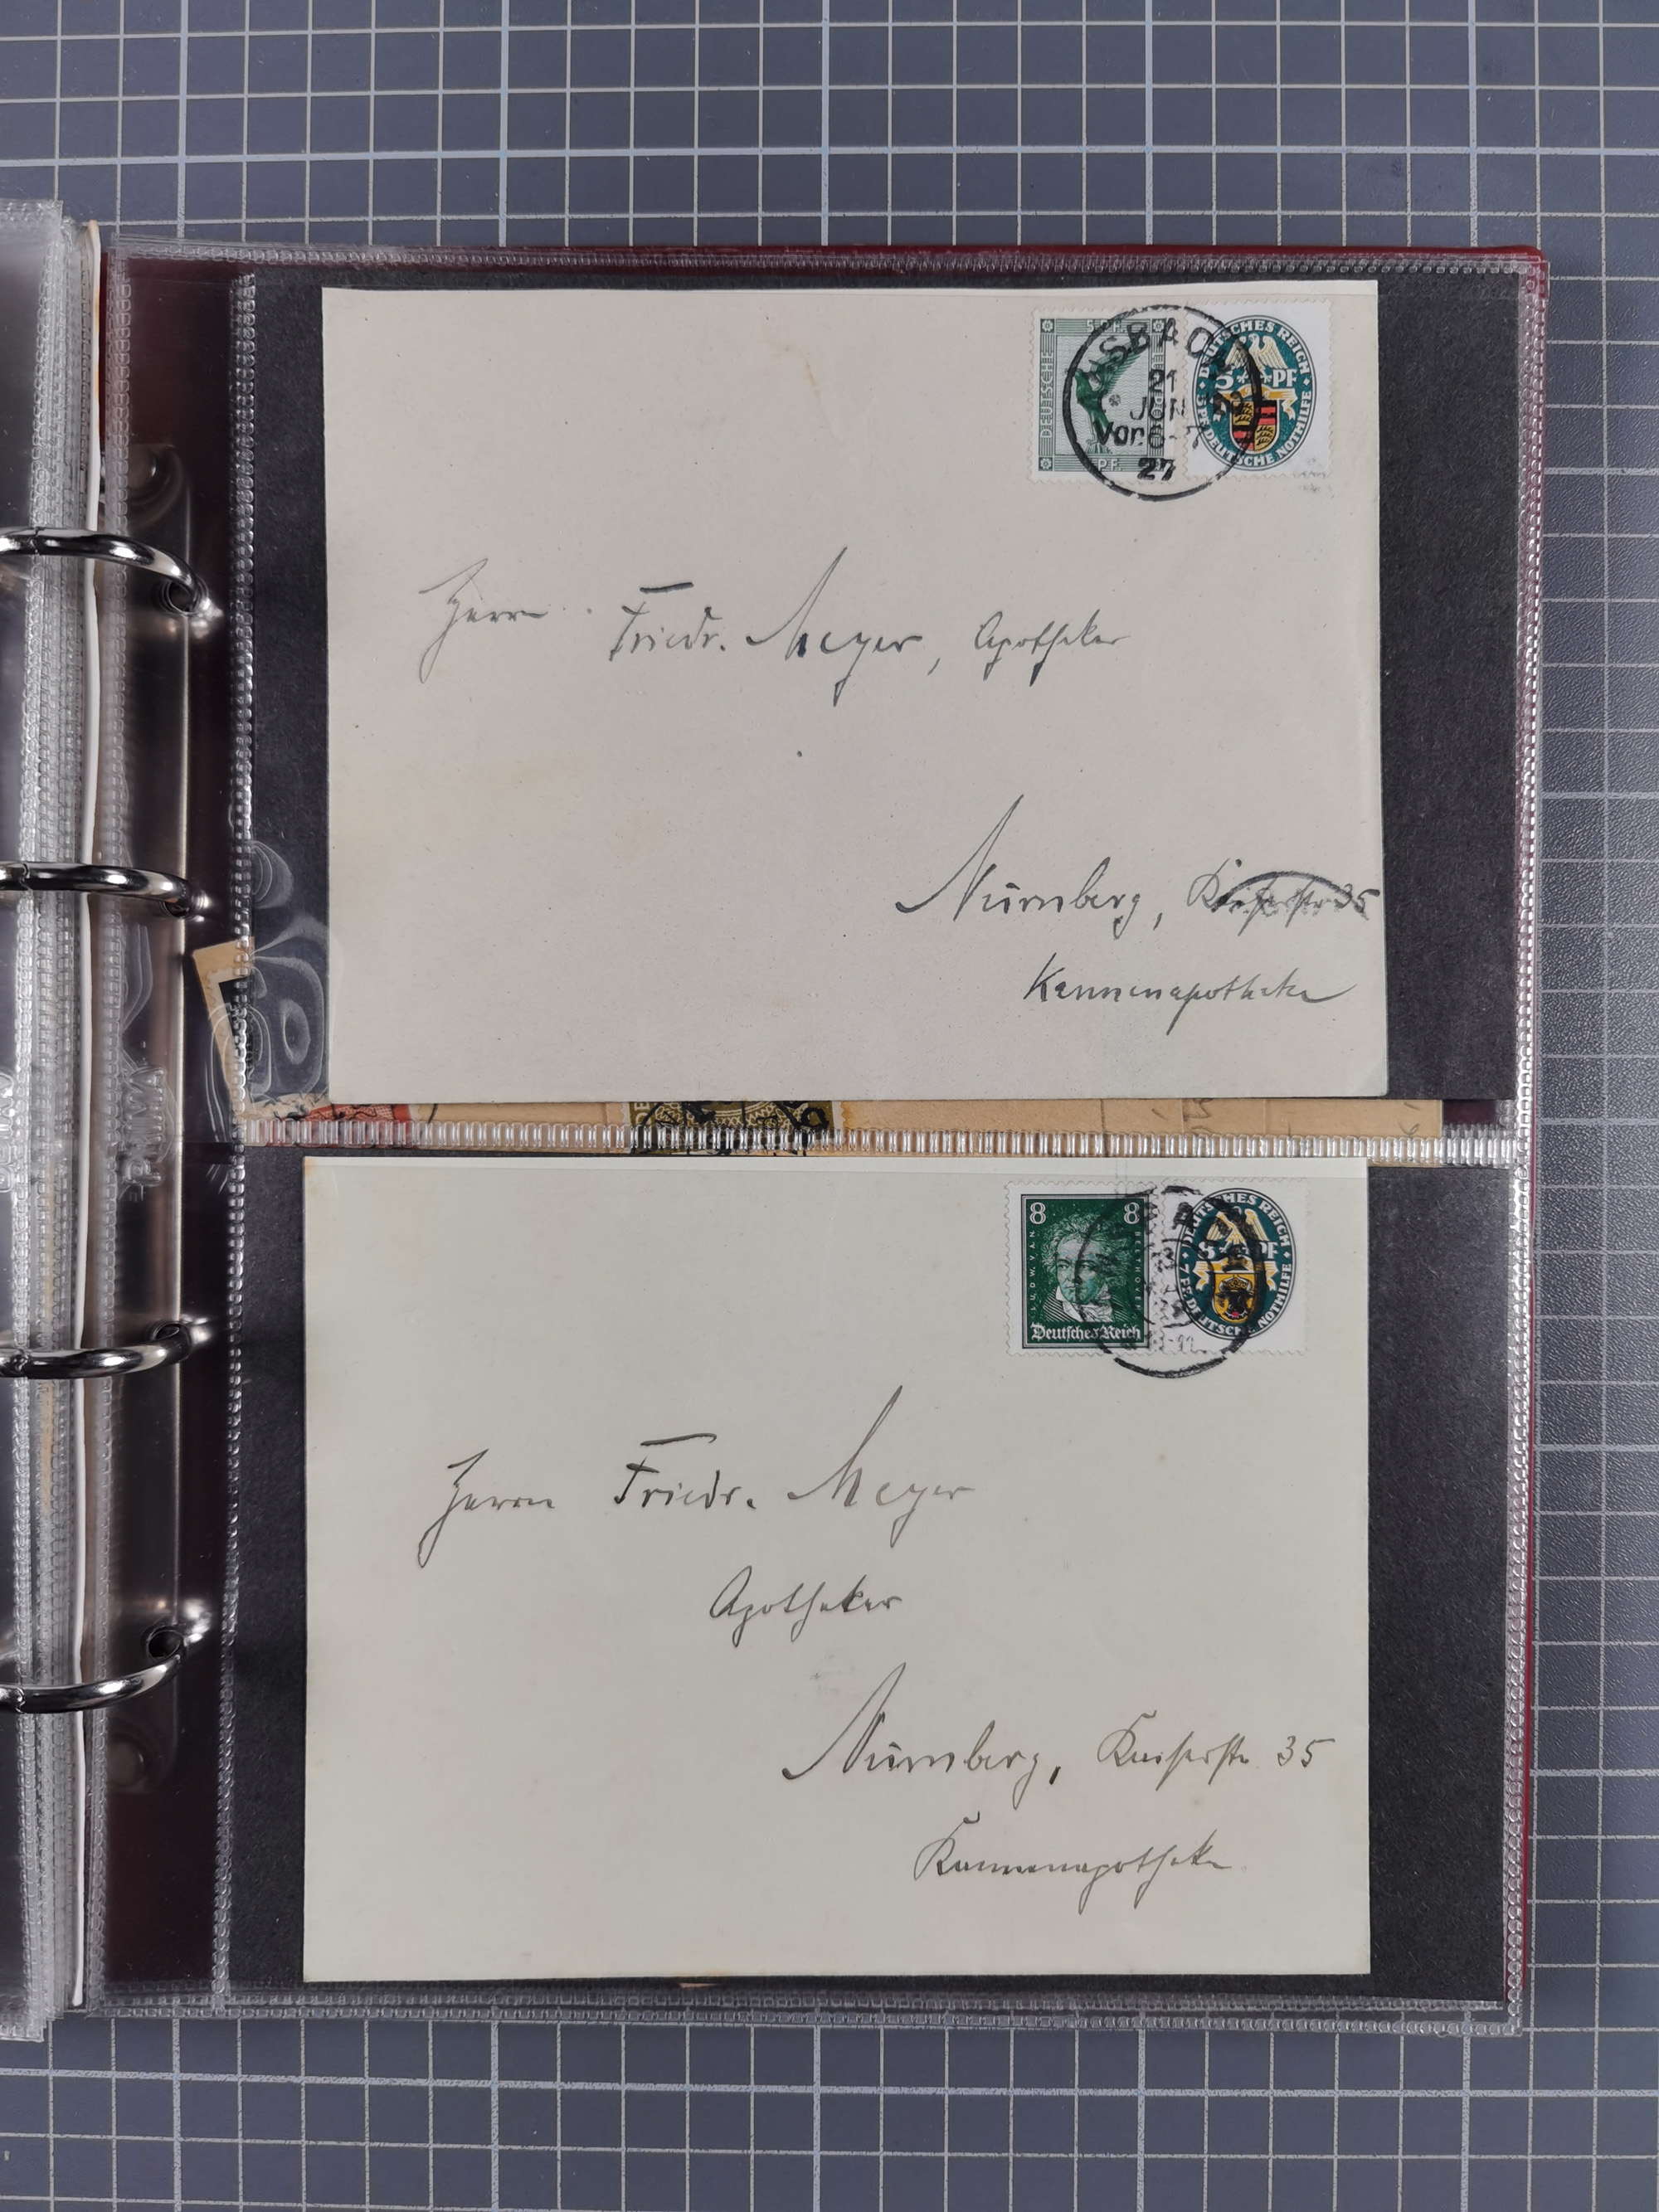 5 PF.
DEUTSCHE
PF.
NSBAC
21
JUN
Vor. 6-7
27
DEUTSCHES REICH
5 PF
5 PF. DEUTSCHE NOTHILFE
Herrn Friedr. Meyer, Apotheker
Nürnberg, Kaiserstr 35
Kannenapotheke
PRIWA
8 8
LUDW. VAN BEETHOVEN
Deutsches Reich
DEUTSCHES REICH
5 PF
DEUTSCHE NOTHILFE
Herrn Friedr. Meyer
Apotheker
Nürnberg, Kaiserstr. 35
Kannenapotheke